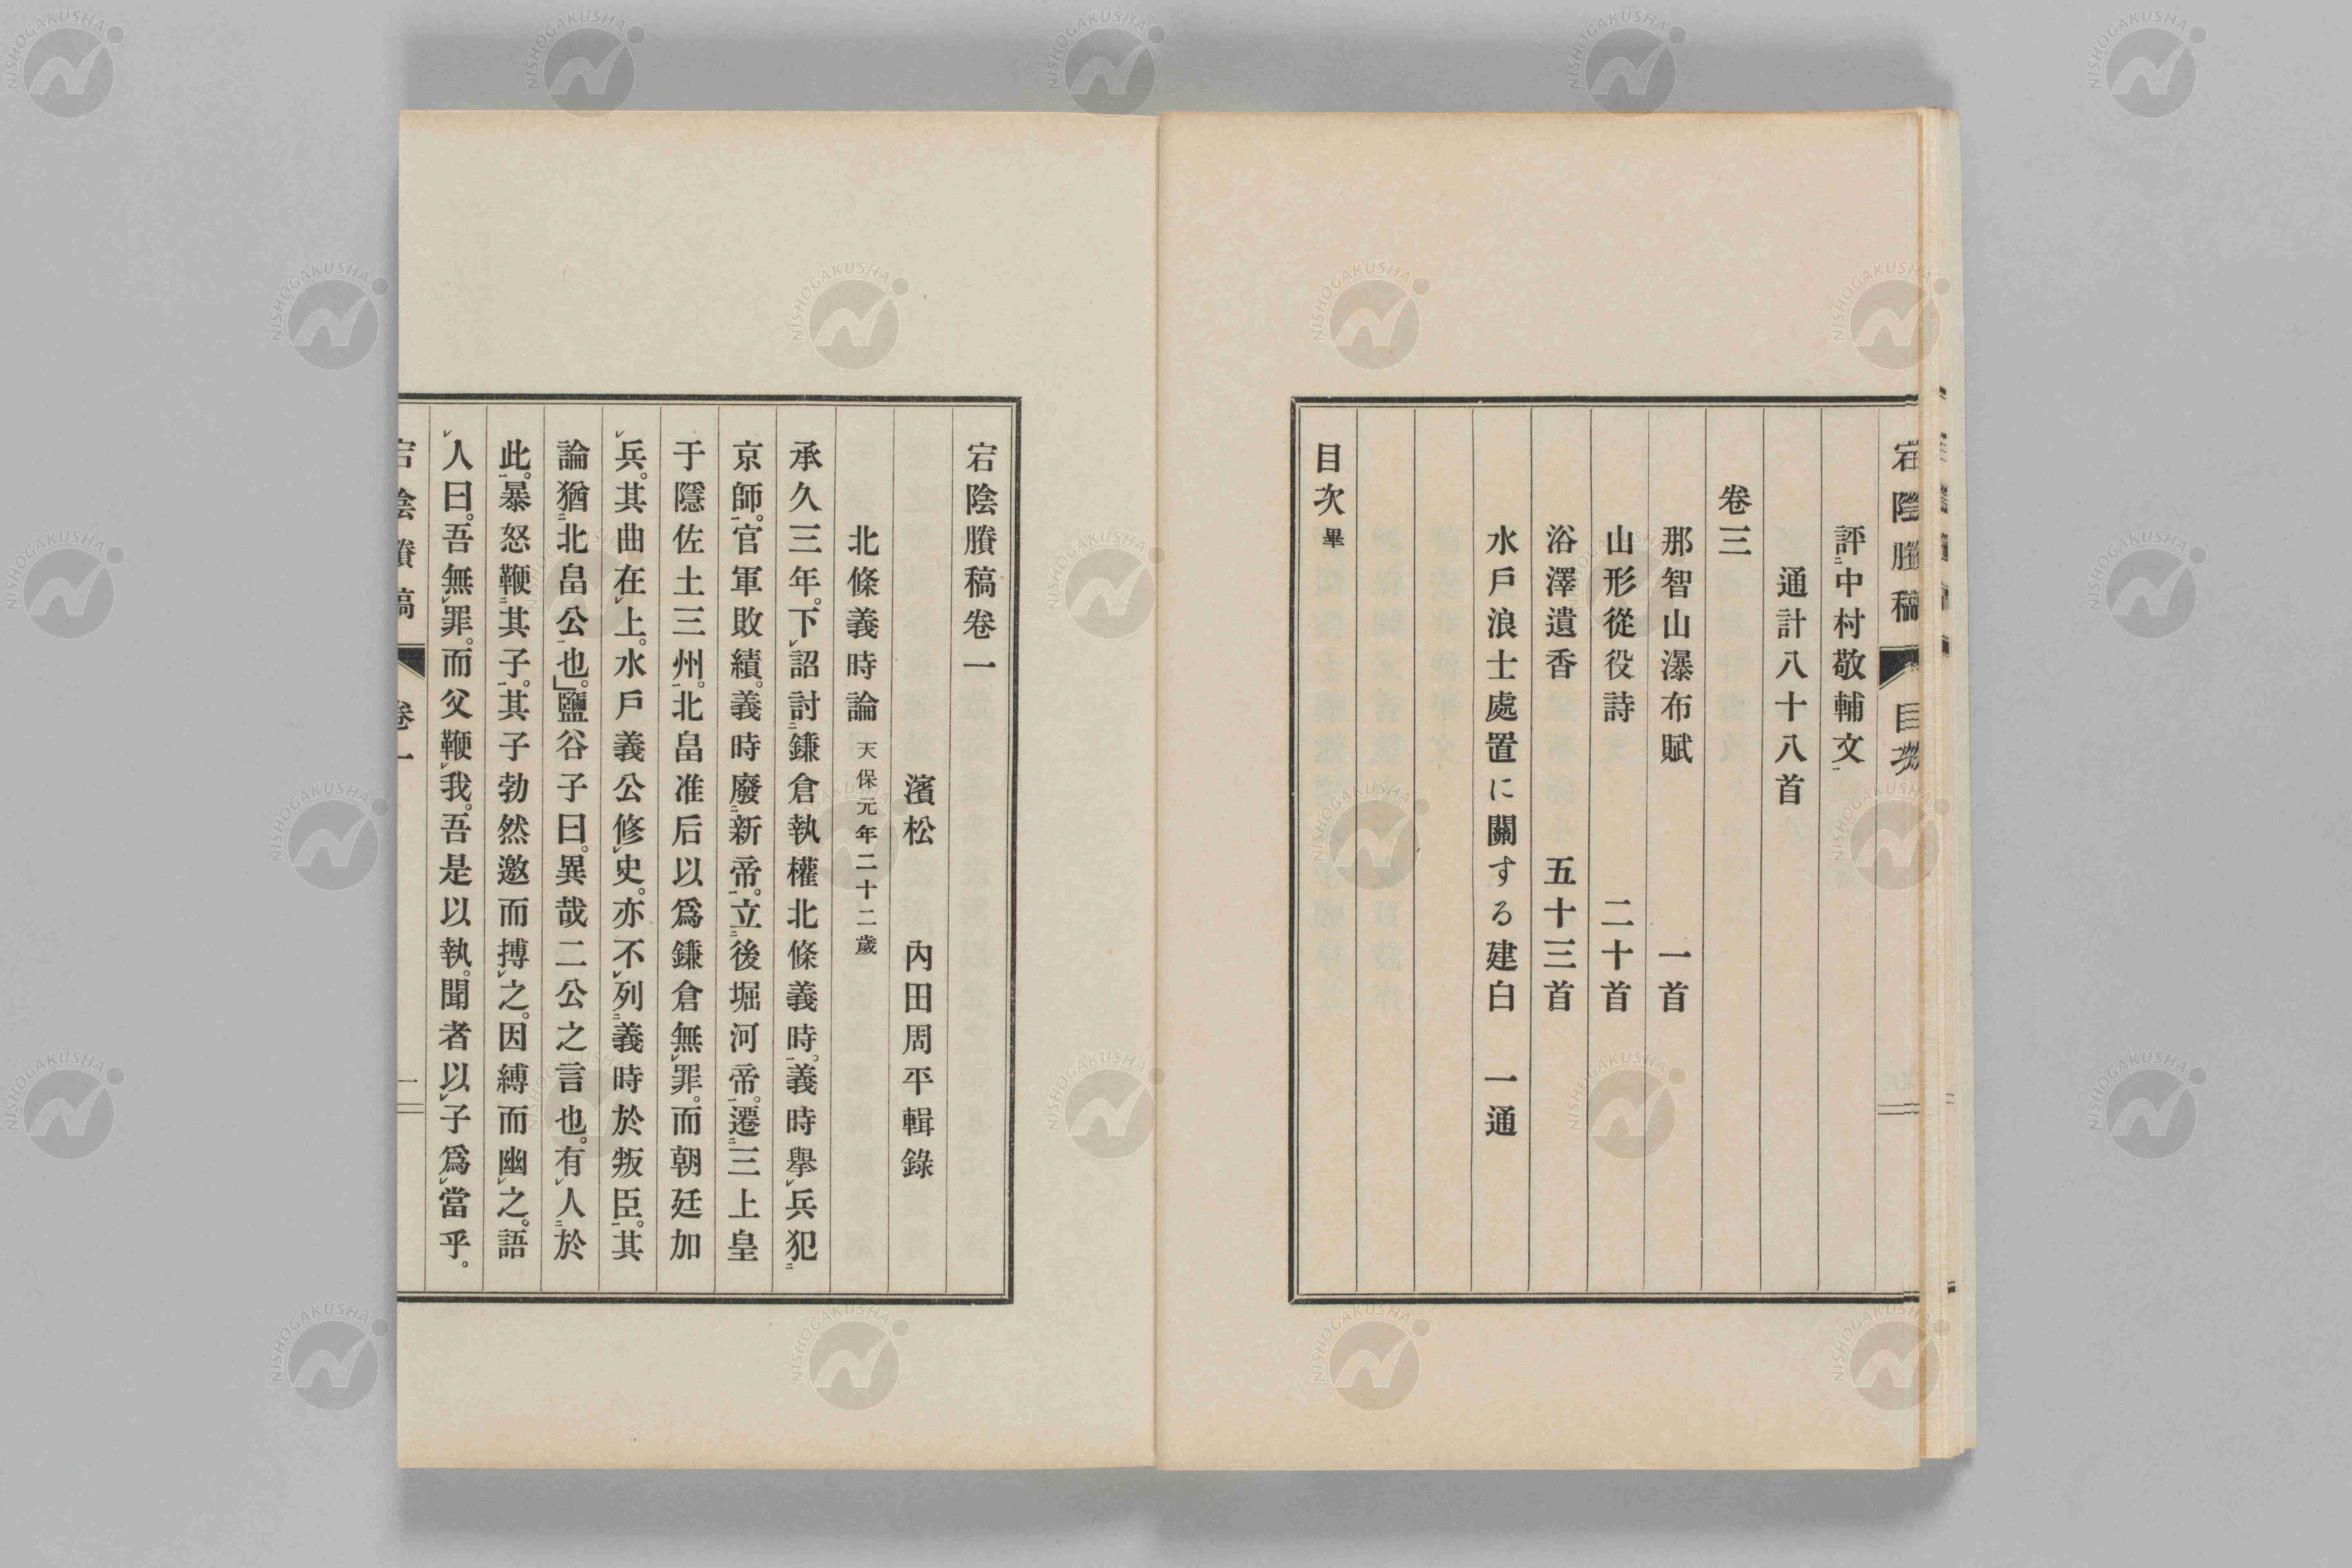 宕陰賸稿 目次
評中村敬輔文
通計八十八首
卷三
那智山瀑布賦 一首
山形從役詩 二十首
浴澤遺香 五十三首
水戶浪士處置に關する建白 一通
目次畢
宕陰賸稿卷一
濱松 內田周平輯錄
北條義時論 天保元年二十二歲
承久三年。下詔討鎌倉執權北條義時。義時擧兵犯
京師。官軍敗績。義時廢新帝。立後堀河帝。遷三上皇
于隱佐土三州。北畠准后以爲鎌倉無罪。而朝廷加
兵。其曲在上。水戶義公修史。亦不列義時於叛臣。其
論猶北畠公也。」鹽谷子曰。異哉二公之言也。有人於
此。暴怒鞭其子。其子勃然邀而搏之。因縛而幽之。語
人曰。吾無罪。而父鞭我。吾是以執。聞者以子爲當乎。
宕陰賸稿 卷一 一
NISHOGAKUSHA